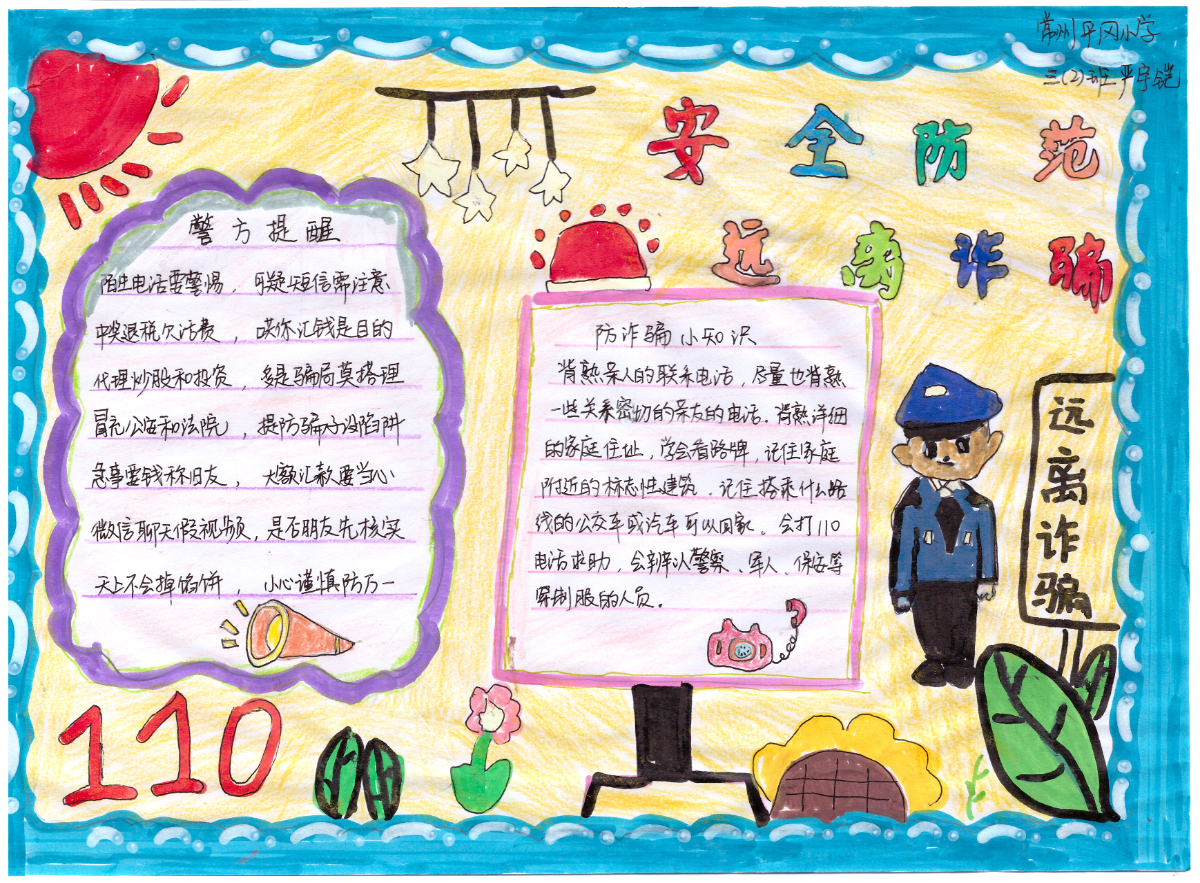 常州平冈小学
三(2)班 严宇铠
安全防范
远离诈骗
警方提醒
陌生电话要警惕，可疑短信需注意
中奖退税欠话费，哄你汇钱是目的
代理炒股和投资，多是骗局莫搭理
冒充公安和法院，提防骗子设陷阱
急事要钱称旧友，大额汇款要当心
微信聊天假视频，是否朋友先核实
天上不会掉馅饼，小心谨慎防万一
防诈骗小知识
背熟家人的联系电话，尽量也背熟
一些关系密切的亲友的电话。背熟详细
的家庭住址，学会看路牌，记住家庭
附近的标志性建筑。记住搭乘什么路
线的公交车或汽车可以回家。会打110
电话求助，会辨认警察、军人、保安等
穿制服的人员。
远离诈骗
110